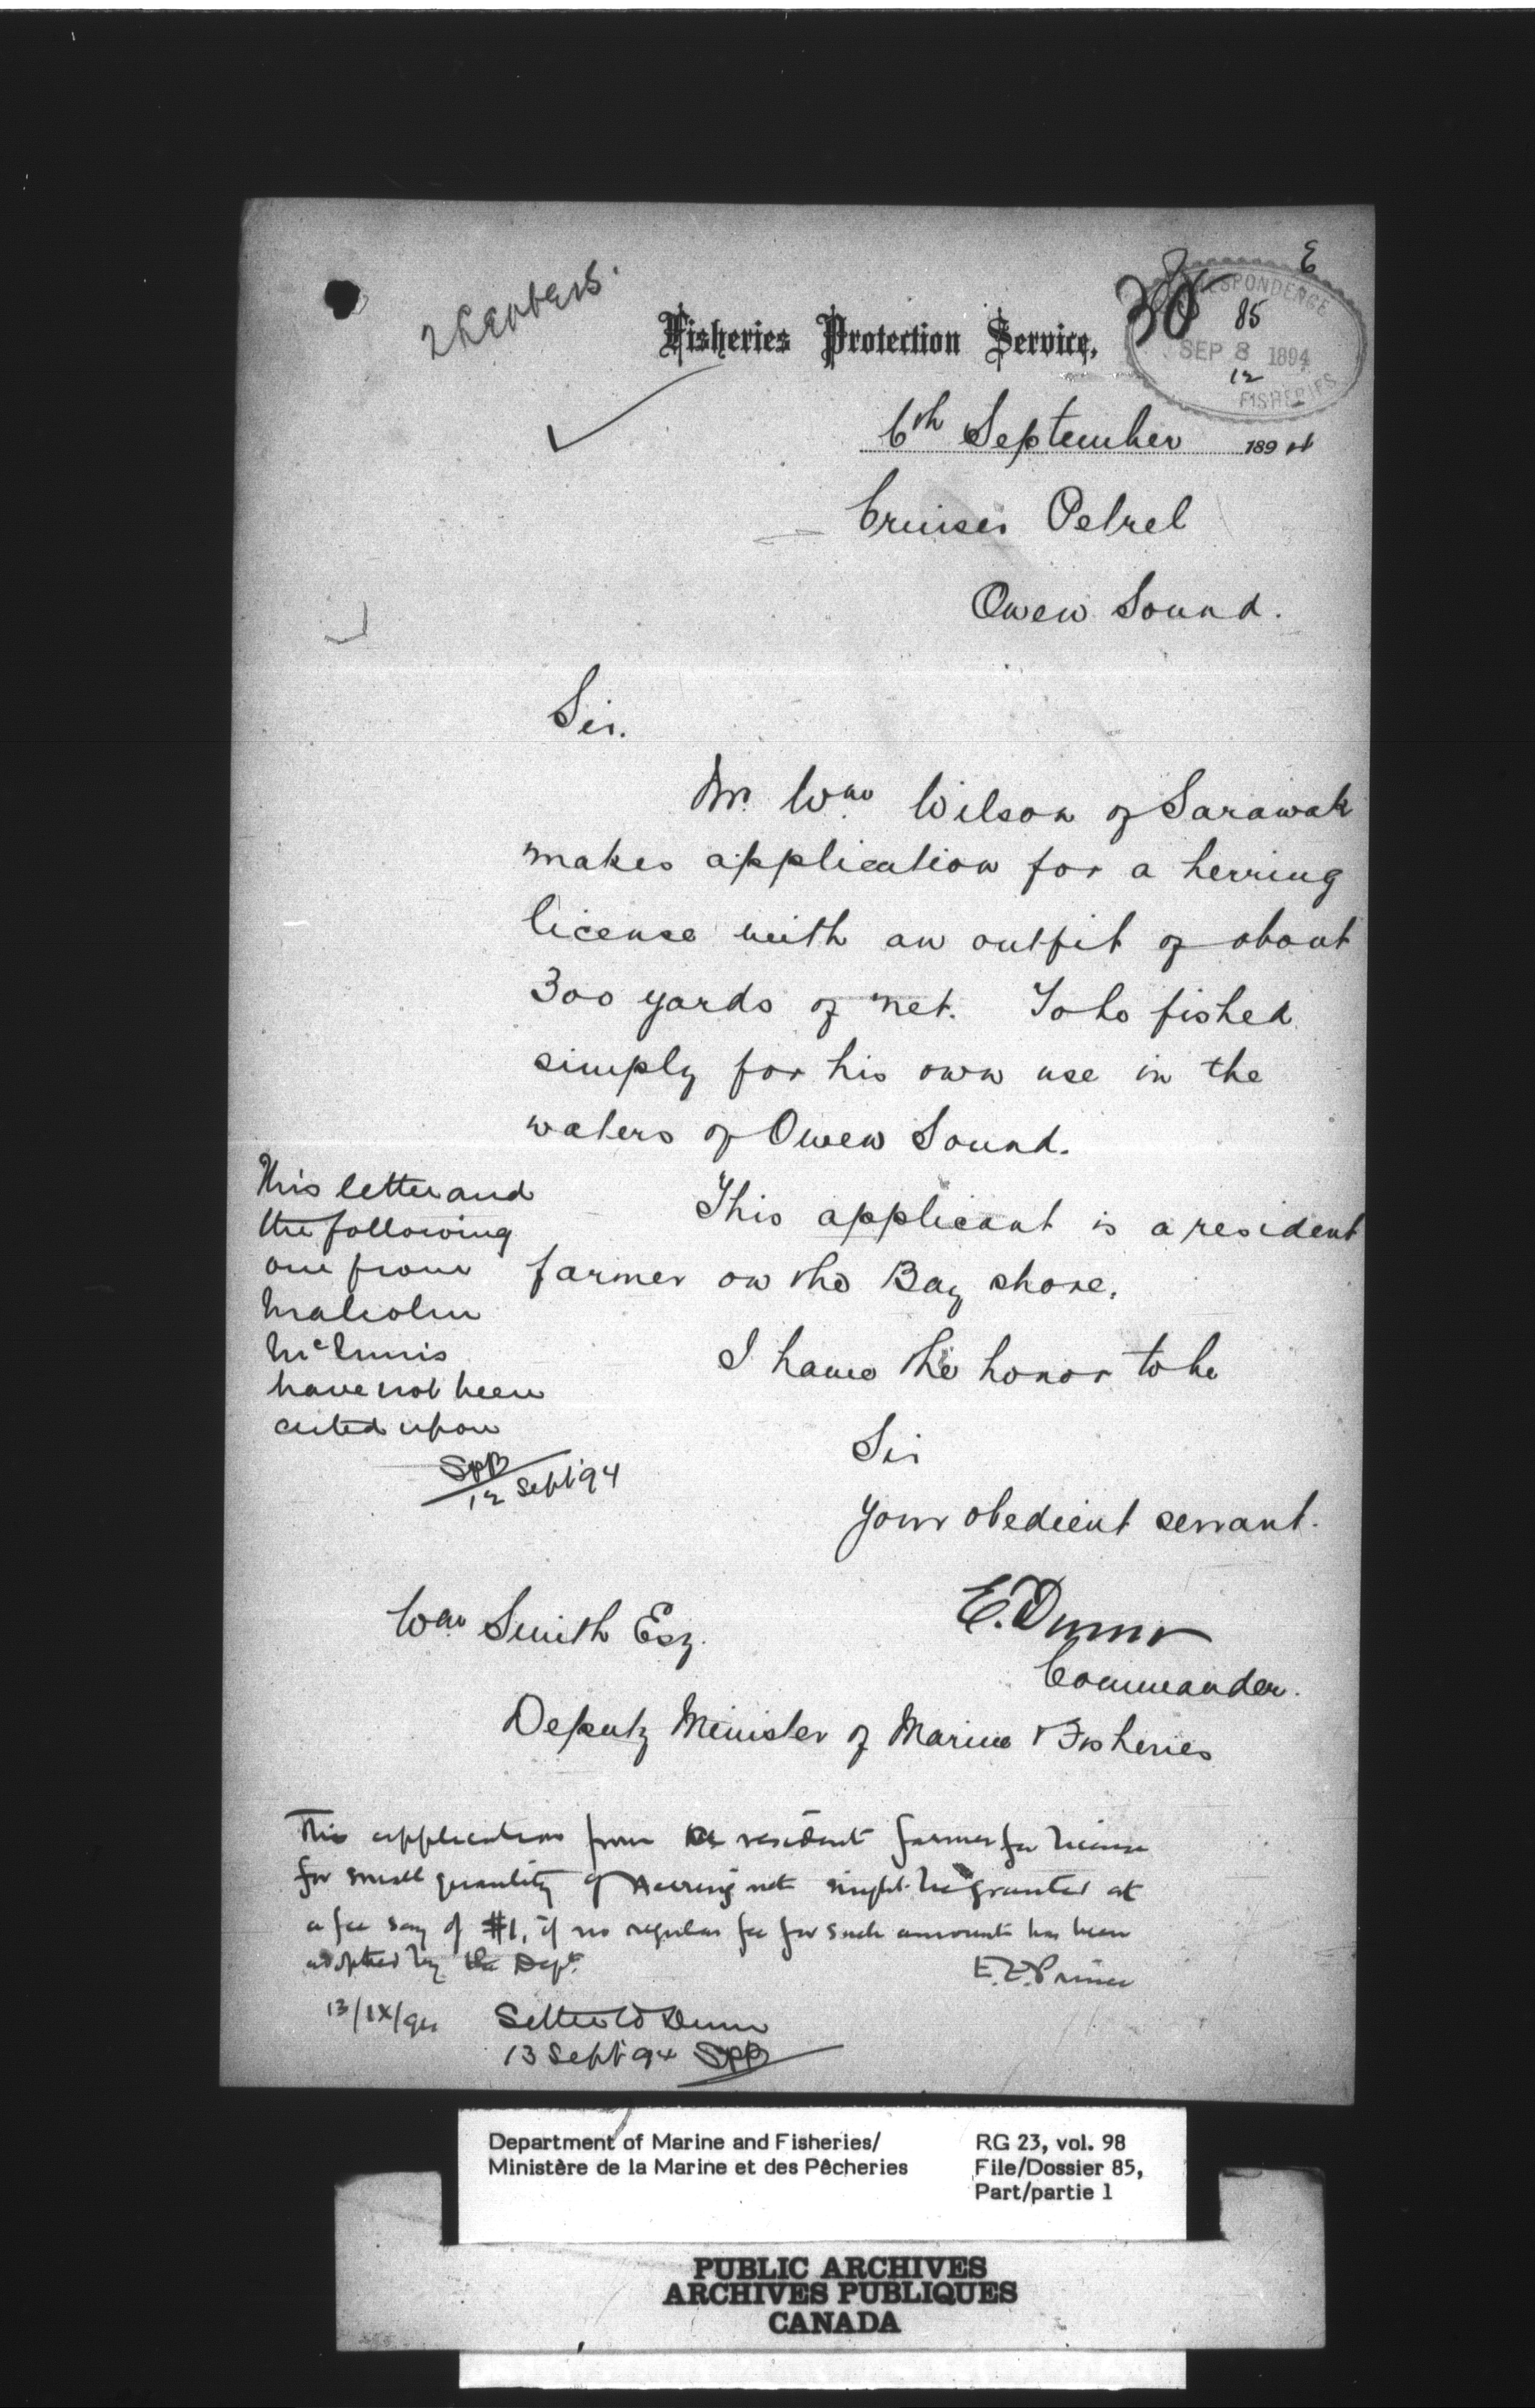 2 Papers
E
30
CORRESPONDENCE
85
SEP 8 1894
12
FISHERIES
Fisheries Protection Service,
6th September 1894
Cruiser Petrel
Owen Sound.
Sir.
Mr. Wm Wilson of Sarawak
makes application for a herring
license with an outfit of about
300 yards of net. To be fished
simply for his own use in the
waters of Owen Sound.
This applicant is a resident
farmer on the Bay shore.
I have the honor to be
Sir
your obedient servant.
E. Dunn
Commander.
Wm Smith Esq.
Deputy Minister of Marine & Fisheries
This letter and
the following
one from
Malcolm
McInnis
have not been
acted upon
SPB
12 Sept 94
This application from a resident farmer for license
for small quantity of Herring net might be granted at
a fee say of $1, if no regular fee for such amount has been
adopted by the Dept.
E.E. Prince
13/IX/94
Letter to Dunn
13 Sept 94 SPB
Department of Marine and Fisheries/
Ministère de la Marine et des Pêcheries
RG 23, vol. 98
File/Dossier 85,
Part/partie 1
PUBLIC ARCHIVES
ARCHIVES PUBLIQUES
CANADA